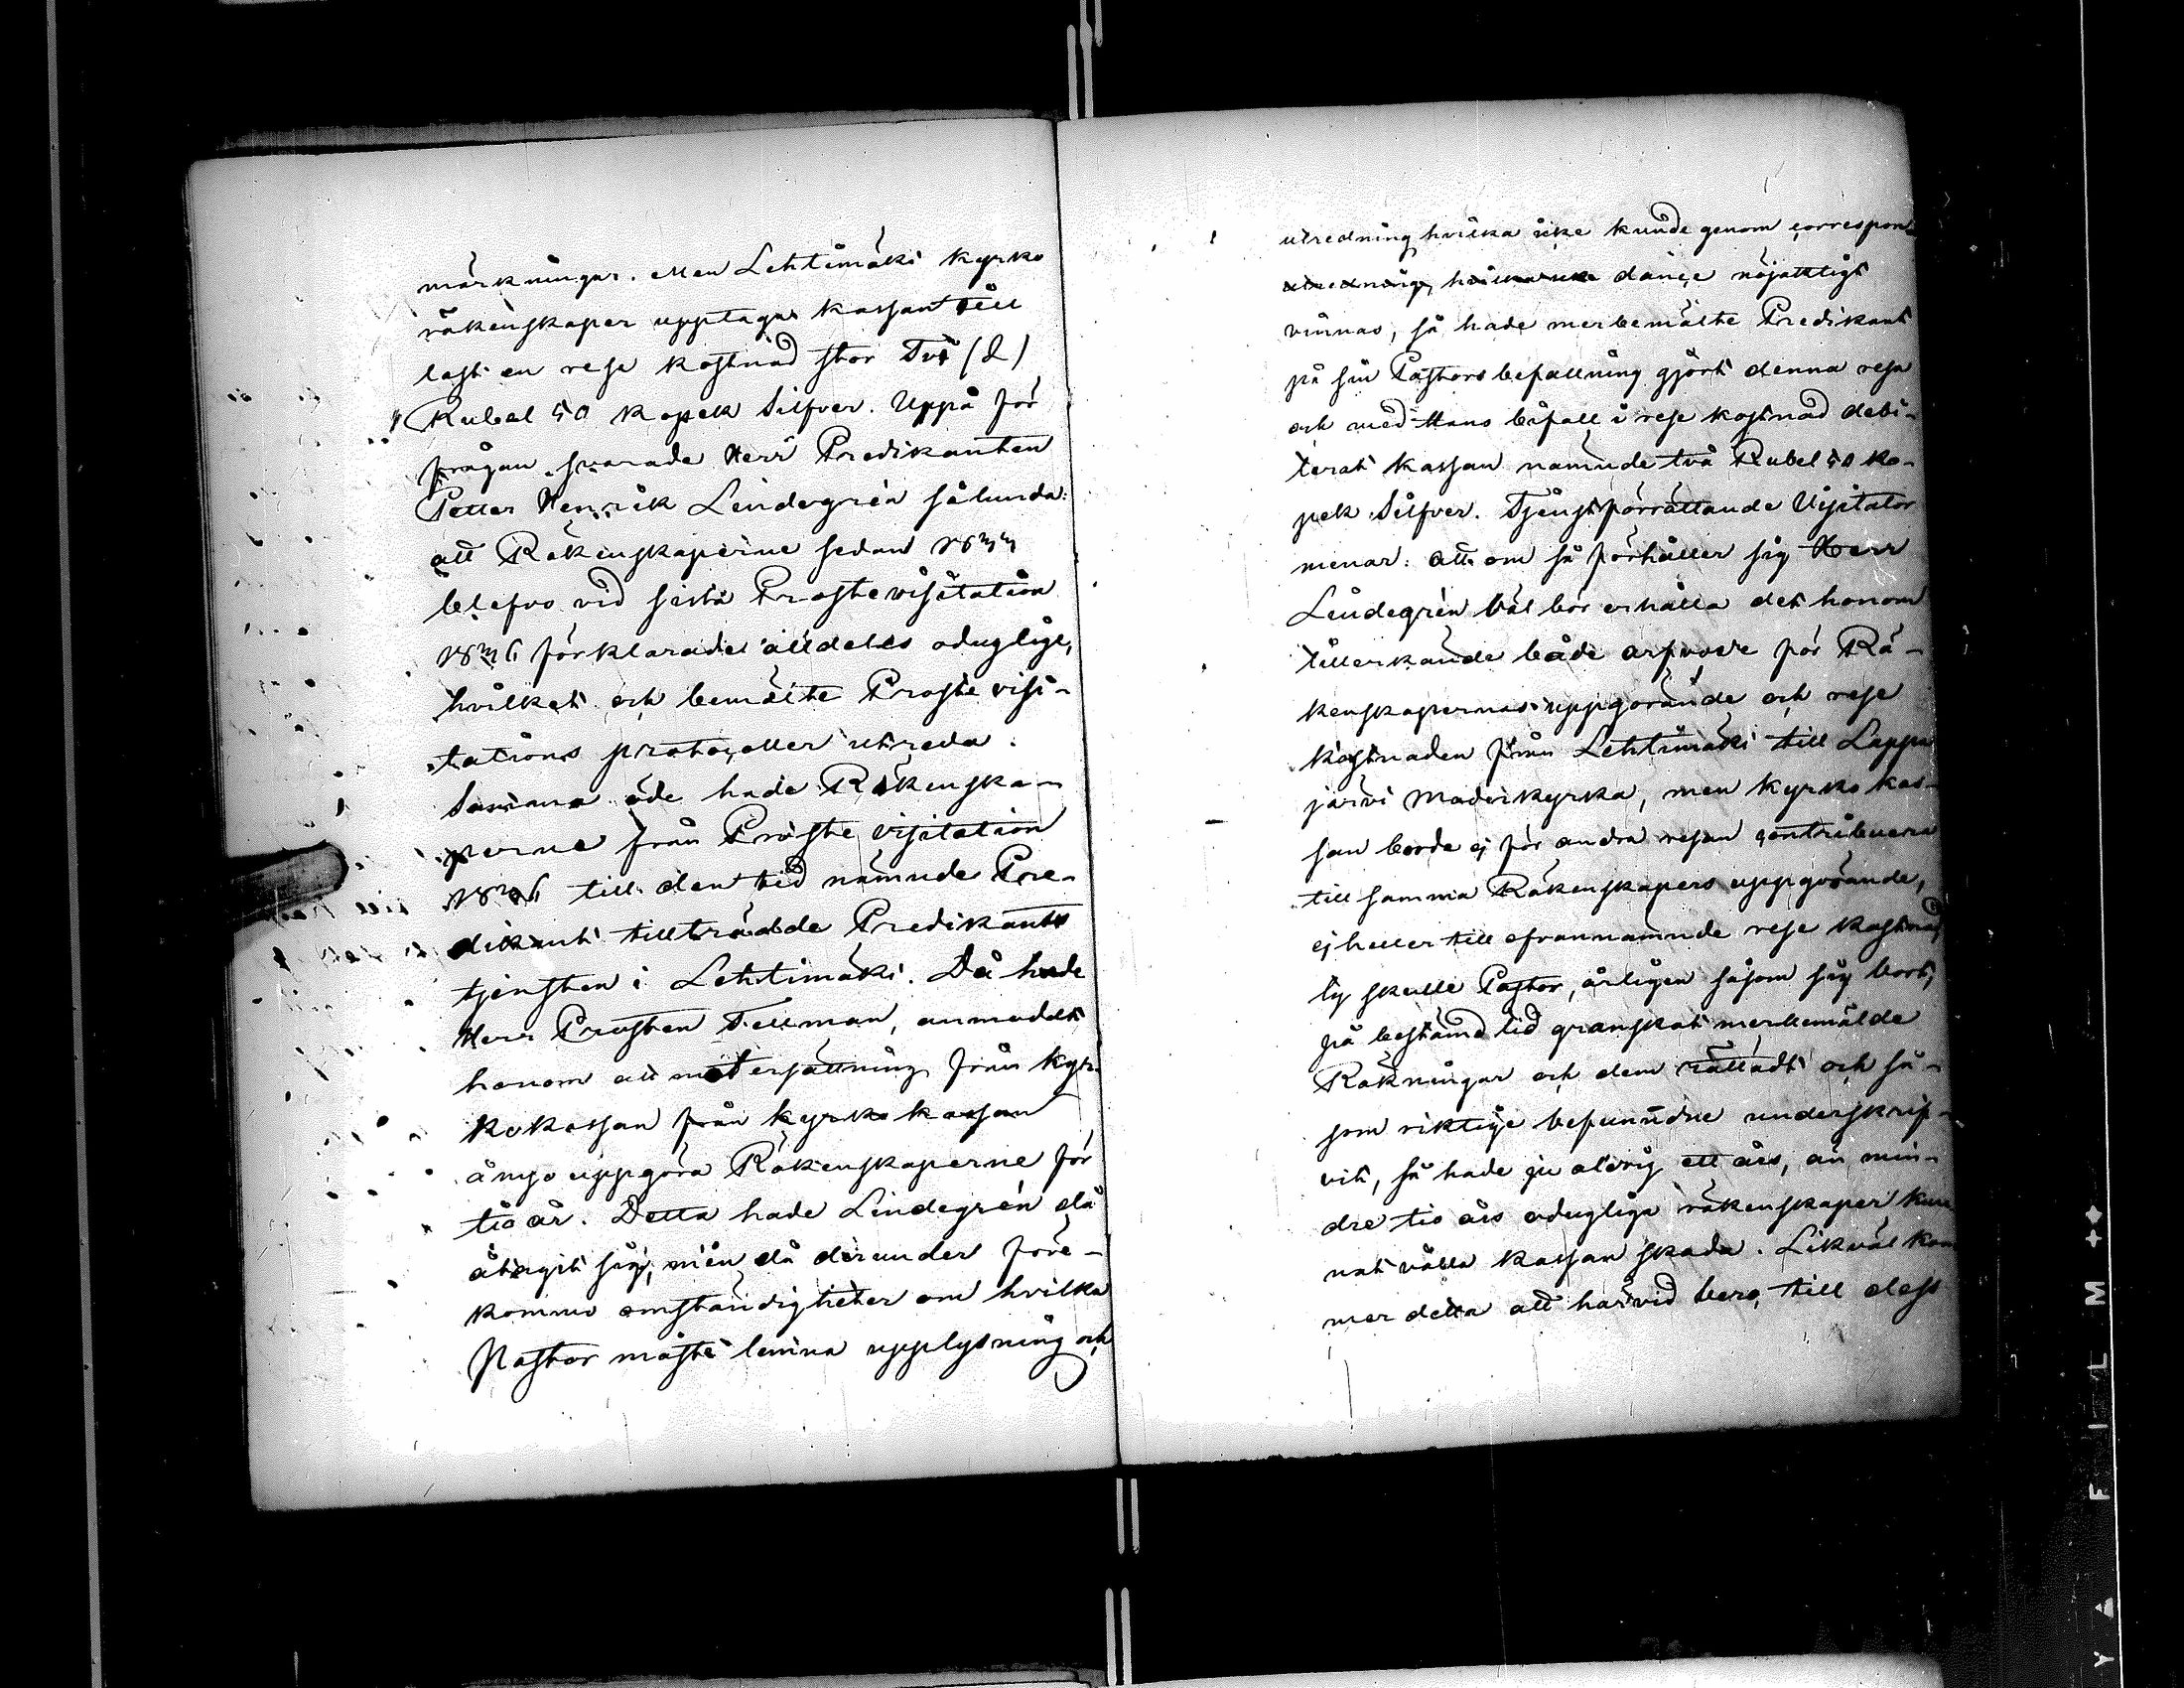 märkningar. Men Lehtimäki Kyrko
räkenskaper upptaga kassan till
last en rese kostnad stor Två (2)
Rubel 50 kopek Silfver. Uppå för
frågan svarade Herr Predikanten
Petter Henrik Lindegrén sålunda:
att Räkenskaperne sedan 1833
blefvo vid sista Prostevisitation
1836 förklarade alldeles oduglige,
hvilket och bemälte Proste visi-
tations protocoller utreda.
Samma öde hade Räkenska-
perne från Proste visitation
1836 till den tid nämnde Pre-
dikant tillträdde Predikants
tjensten i Lehtimäki. Då hade
Herr Prosten Tellman, anmodadt
honom att mot ersättning från kyr-
kokassan från kyrko kassan
ånyo uppgöra Räkenskaperne för
tio år. Detta hade Lindegrén då
åtagit sig, men då derunder före-
kommo omständigheter om hvilka
Pastor måste lemna upplysning och
utredning hvilka icke kunde genom correspon-
utredning, hvilka icke dance nöjaktligt
vinnas, så hade merbemälte Predikant
på sin Pastors befallning gjört denna resa
och med Hans bifall i rese kostnad debi-
terat kassan nämnde två Rubel 50 ko-
pek Silfver. Tjenstförrättande Visitator
menar: att om så förhåller sig Herr
Lindegrén väl bör erhålla det honom
tillerkände både arfvode för Rä-
kenskapernas uppgörande och rese
kostnaden från Lehtimäki till Lappa
järvi Moderkyrka, men Kyrko kas-
san borde ej för andra resan contribuera
till samma Räkenskapers uppgörande,
ej heller till ofvannämnde rese kostnad
ty skulle Pastor, årligen såsom sig bort,
på bestämd tid granskat merbemälde
Räkningar och dem rättadt och så-
som riktige befunndne underskrif-
vit, så hade ju aldrig ett års, än min-
dre tio års odugliga räkenskaper kun
nat vålla kassan skada. Likväl kom
mer detta att härvid bero, till dess